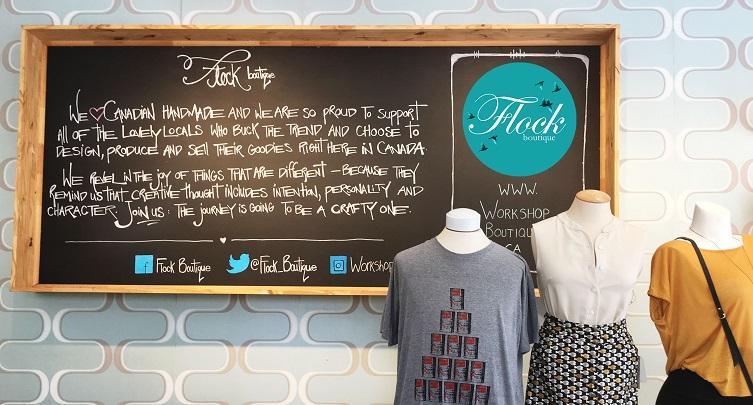 Flock boutique
WE CANADIAN HANDMADE AND WE ARE SO PROUD TO SUPPORT
ALL OF THE LOVELY LOCALS WHO BUCK THE TREND AND CHOOSE TO
DESIGN, PRODUCE AND SELL THEIR GOODIES RIGHT HERE IN CANADA.
WE REVEL IN THE JOY OF THINGS THAT ARE DIFFERENT – BECAUSE THEY
REMIND US THAT CREATIVE THOUGHT INCLUDES INTENTION, PERSONALITY AND
CHARACTER. JOIN US: THE JOURNEY IS GOING TO BE A CRAFTY ONE.
f Flock Boutique @Flock_Boutique Workshop
Flock
boutique
WWW.
WORKSHOP
BOUTIQUE
.CA